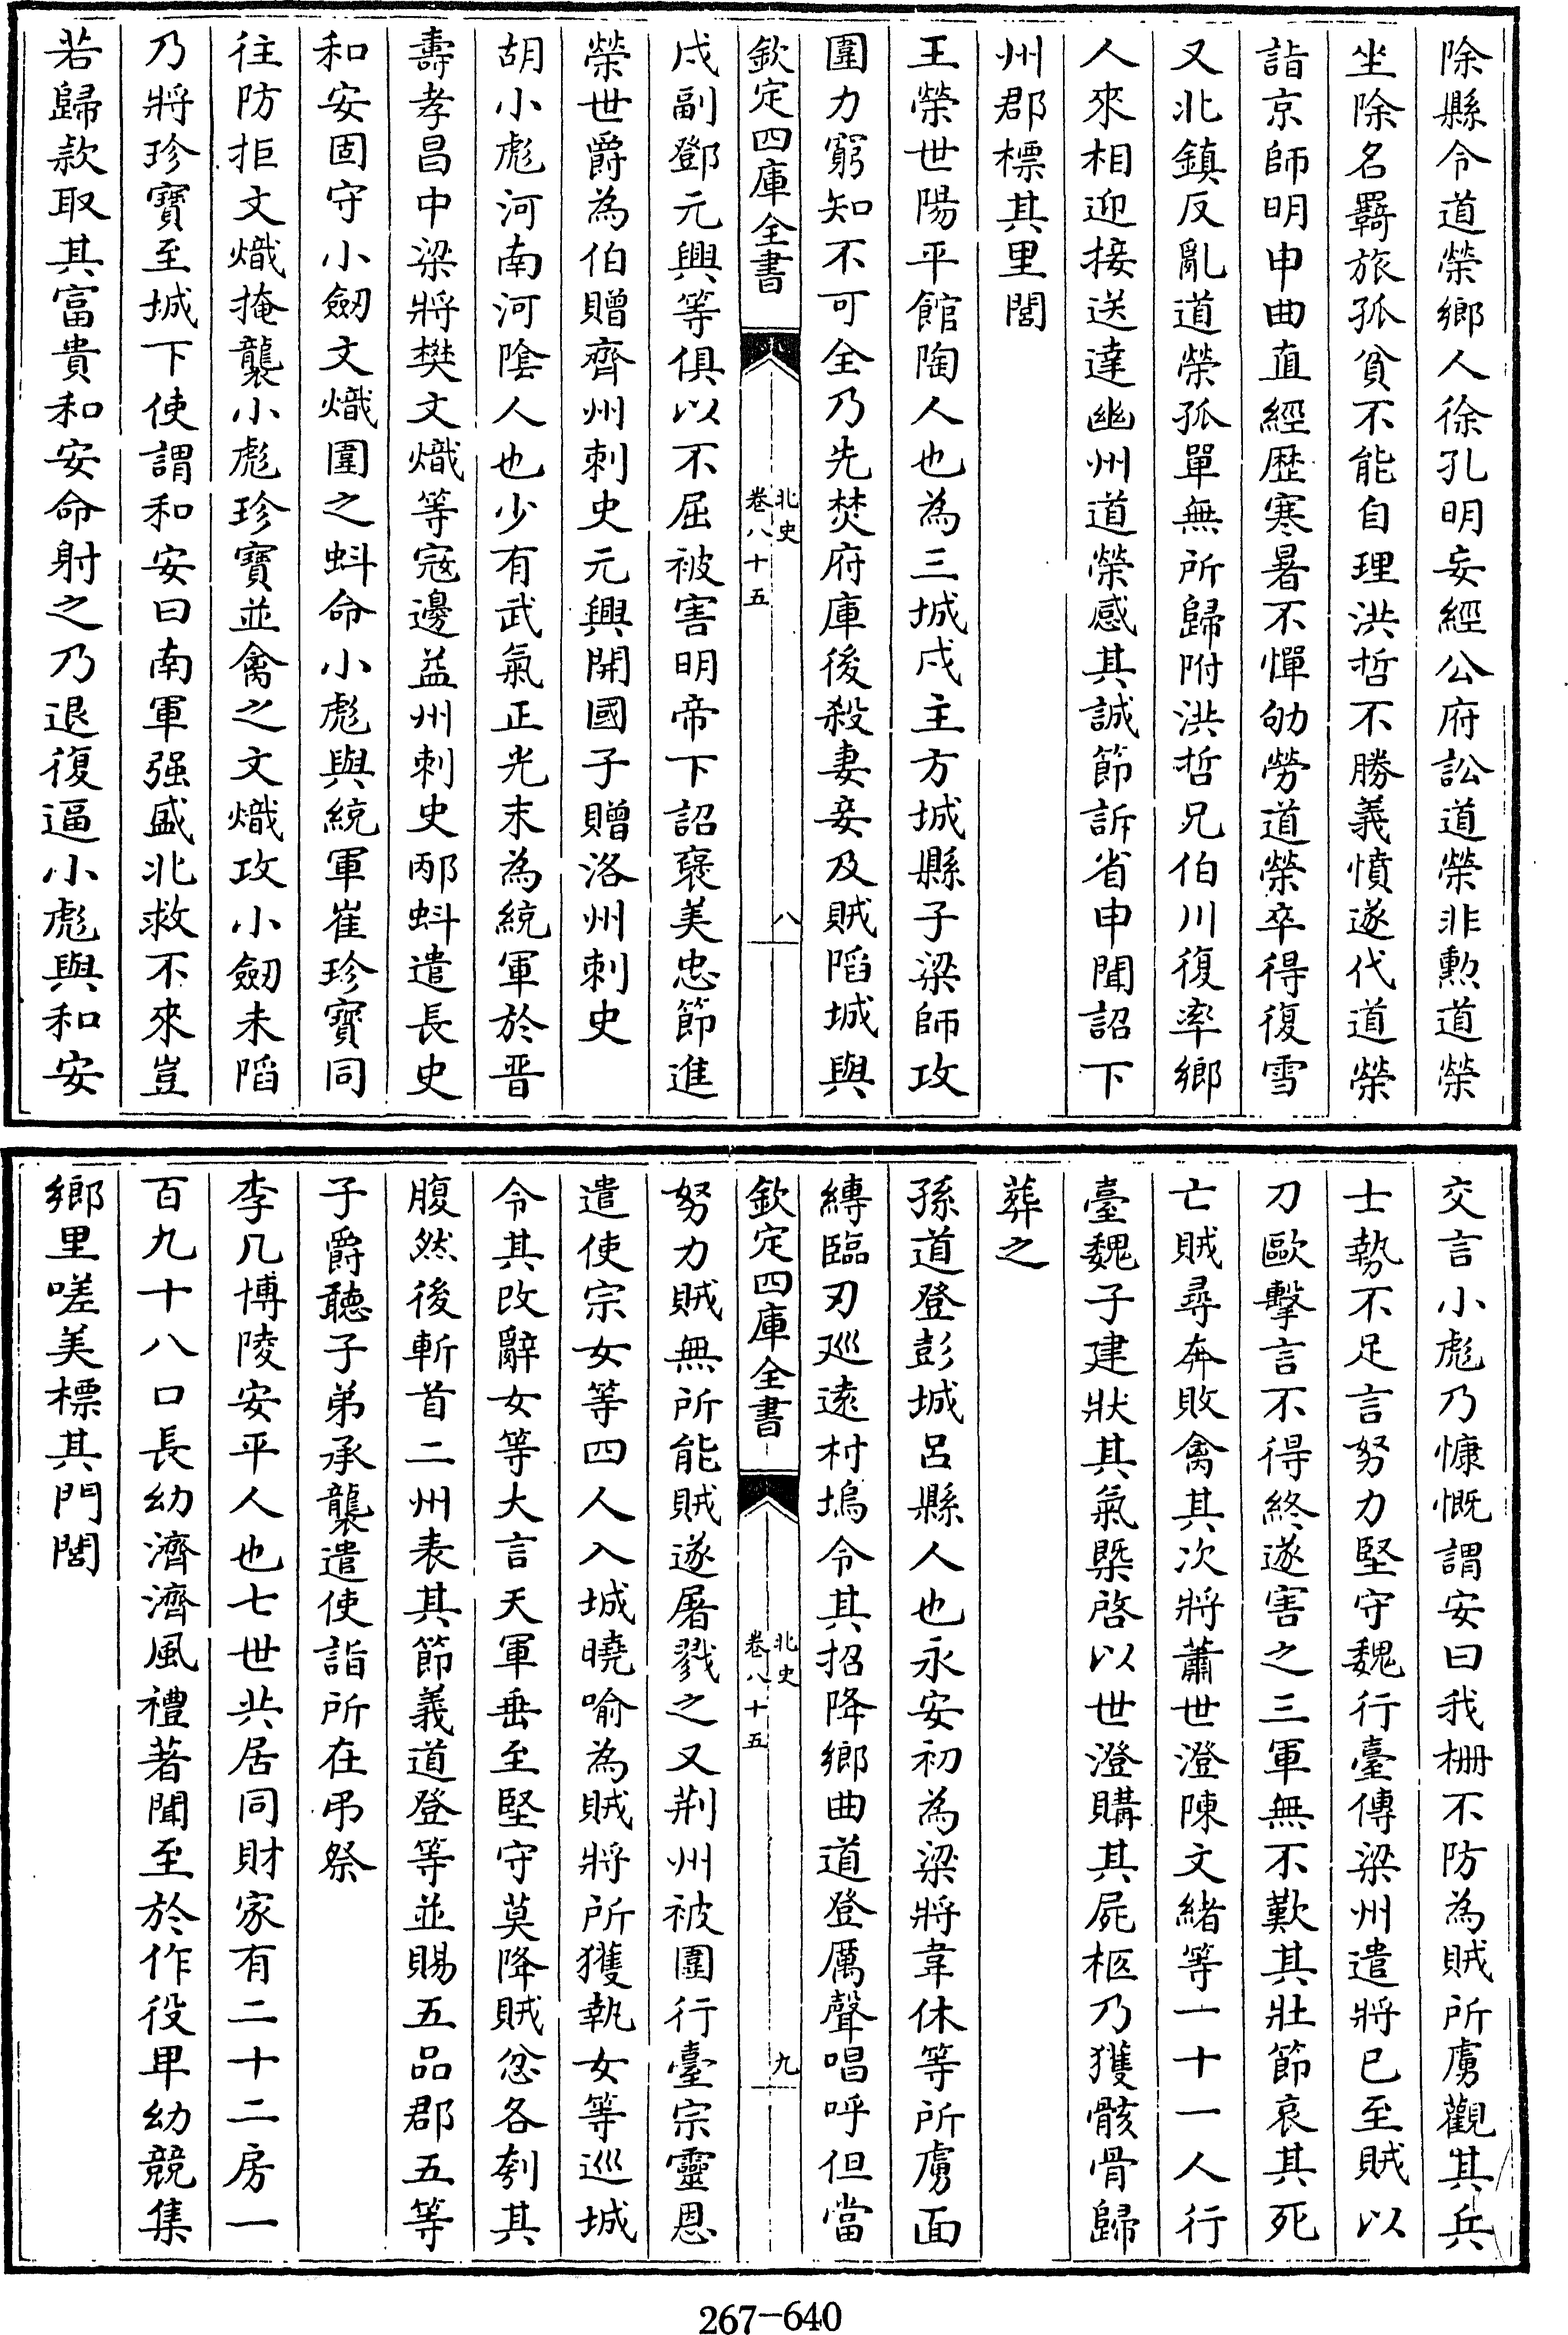 除縣令道榮鄉人徐孔明妄經公府訟道榮非勲道榮
坐除名羇旅孤貧不能自理洪哲不勝義憤遂代道榮
詣京師明申曲直經歴寒暑不憚劬勞道榮卒得復雪
又北鎮反亂道榮孤單無所歸附洪哲兄伯川復率鄉
人來相迎接送達幽州道榮感其誠節訴省申聞詔下
州郡標其里閭
王榮世陽平館陶人也為三城戍主方城縣子梁師攻
圍力窮知不可全乃先焚府庫後殺妻妾及賊䧟城與
欽定四庫全書
北史
卷八十五
八
戍副鄧元興等俱以不屈被害明帝下詔褒美忠節進
榮世爵為伯贈齊州刺史元興開國子贈洛州刺史
胡小彪河南河隂人也少有武氣正光末為統軍於晋
壽孝昌中梁將樊文熾等寇邊益州刺史邴蚪遣長史
和安固守小劒文熾圍之蚪命小彪與統軍崔珍寳同
往防拒文熾掩襲小彪珍寳並禽之文熾攻小劒未䧟
乃將珍寳至城下使謂和安曰南軍强盛北救不來豈
若歸欵取其富貴和安命射之乃退復逼小彪與和安
交言小彪乃慷慨謂安曰我栅不防為賊所虜觀其兵
士勢不足言努力堅守魏行臺傅梁州遣將已至賊以
刀歐擊言不得終遂害之三軍無不歎其壯節哀其死
亡賊尋奔敗禽其次將蕭世澄陳文緒等一十一人行
臺魏子建狀其氣槩啓以世澄購其屍柩乃獲骸骨歸
葬之
孫道登彭城呂縣人也永安初為梁將韋休等所虜面
縳臨刃廵逺村塢令其招降鄉曲道登厲聲唱呼但當
欽定四庫全書
北史
卷八十五
九
努力賊無所能賊遂屠戮之又荆州被圍行臺宗靈恩
遣使宗女等四人入城曉喻為賊將所獲執女等巡城
令其改辭女等大言天軍垂至堅守莫降賊忿各刳其
腹然後斬首二州表其節義道登等並賜五品郡五等
子爵聽子弟承襲遣使詣所在弔祭
李几博陵安平人也七世共居同財家有二十二房一
百九十八口長幼濟濟風禮著聞至於作役卑幼競集
鄉里嗟美標其門閭
267-640